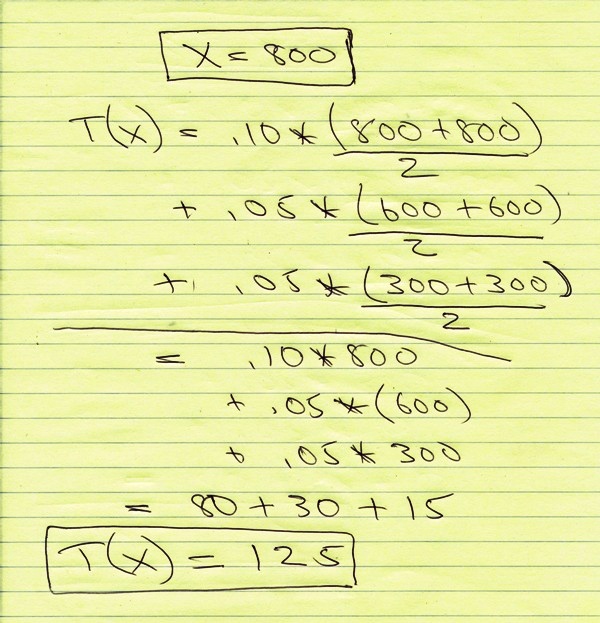 X = 800
T(X) = .10 * (800 + 800)
2
+ .05 * (600 + 600)
2
+ .05 * (300 + 300)
2
= .10 * 800
+ .05 * (600)
+ .05 * 300
= 80 + 30 + 15
T(X) = 125